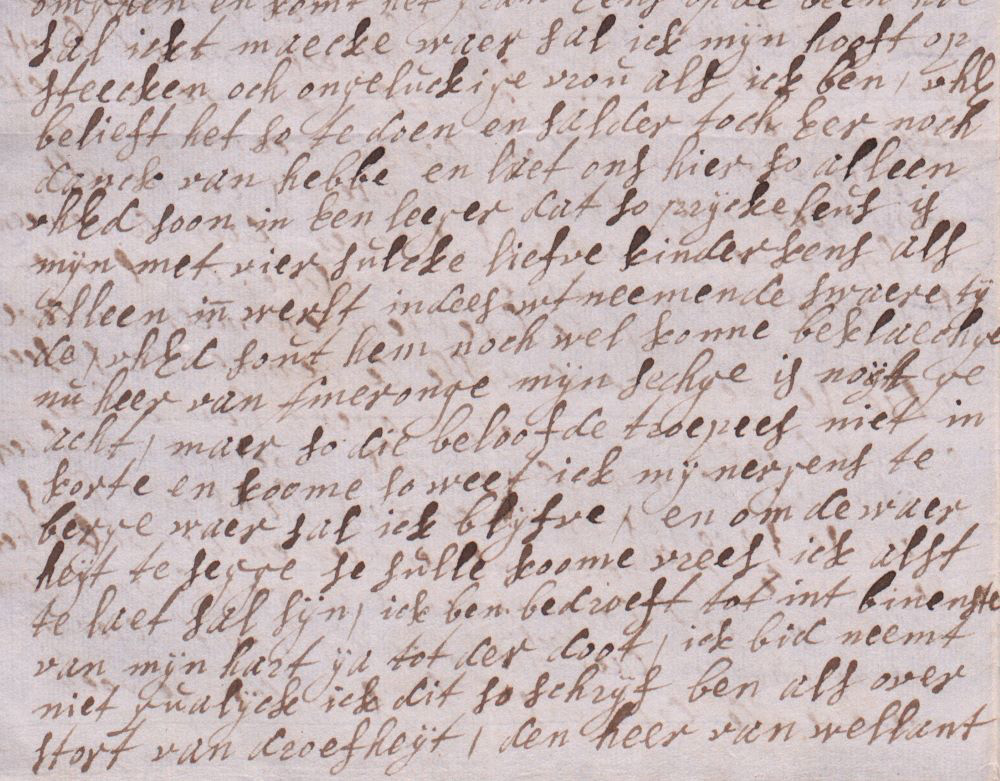 en komt het eens op de been
sal ickt maecke waer sal ick mijn hooft op
steecken och ongeluckige vrou als ick ben, vhEd
belieft het so te doen en salder toch eer noch
danck van hebbe en laet ons hier so alleen
vhEd soon in een leeger dat so prijckeleus is
mijn met vier sulcke liefve kinderkens als
alleen in werlt indees wtneemende swaere tij
de, vhEd sout hem noch wel konne beklaechge
nu heer van smeronge mijn sechge is noijt ge
acht, maer so die beloofde troepees niet in
korte en koome so weet ick mij nergens te
berge waer sal ick blijfve, en om de waer
heijt te segge se sulle koome vrees ick alst
te laet sal sijn, ick ben bedroeft tot int binenste
van mijn hart ija tot der doot, ick bid neemt
niet qualijck ick dit so schrijf ben als over
stort van droefheijt, den heer van wellant